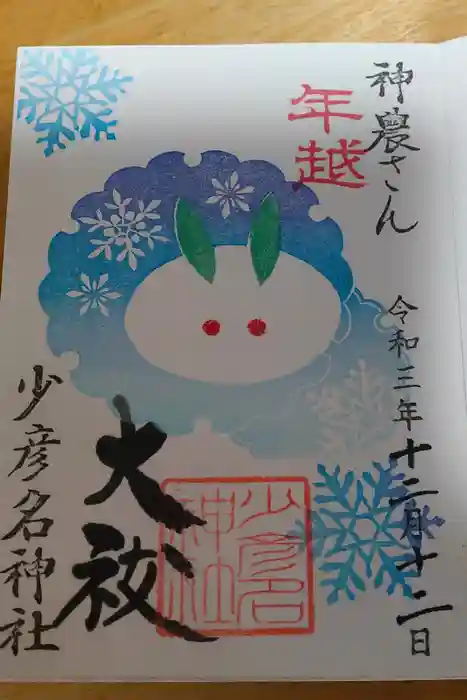 神農さん
令和三年十二月十二日
年越
大祓
少彦名神社
少彦名
神社